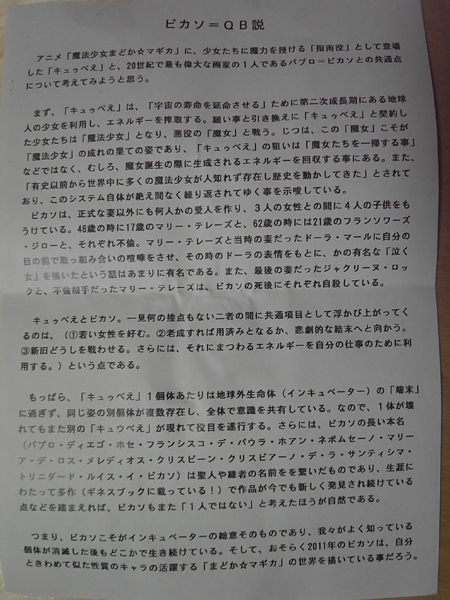 ピカソ＝ＱＢ説
アニメ「魔法少女まどか☆マギカ」に、少女たちに魔力を授ける「指南役」として登場
した「キュゥべえ」と、20世紀で最も偉大な画家の１人であるパブロ＝ピカソとの共通点
について考えてみようと思う。
まず、「キュゥべえ」は、「宇宙の寿命を延命させる」ために第二次成長期にある地球
人の少女を利用し、エネルギーを搾取する。願い事と引き換えに「キュゥべえ」と契約し
た少女たちは「魔法少女」となり、悪役の「魔女」と戦う。じつは、この「魔女」こそが
「魔法少女」の成れの果ての姿であり、「キュゥべえ」の狙いは「魔女たちを一掃する事」
などではなく、むしろ、魔女誕生の際に生成されるエネルギーを回収する事にある。また、
「有史以前から世界中に多くの魔法少女が人知れず存在し歴史を動かしてきた」とされて
おり、このシステム自体が絶え間なく繰り返されてゆく事を示唆している。
ピカソは、正式な妻以外にも何人かの愛人を作り、３人の女性との間に４人の子供をも
うけている。46歳の時に17歳のマリー・テレーズと、62歳の時には21歳のフランソワーズ
・ジローと、それぞれ不倫。マリー・テレーズと当時の妻だったドーラ・マールに自分の
目の前で取っ組み合いの喧嘩をさせ、その時のドーラの表情をもとに、かの有名な「泣く
女」を描いたという話はあまりに有名である。また、最後の妻だったジャクリーヌ・ロッ
クと、不倫相手だったマリー・テレーズは、ピカソの死後にそれぞれ自殺している。
キュゥべえとピカソ。一見何の接点もない二者の間に共通項目として浮かび上がってく
るのは、（①若い女性を好む。②老成すれば用済みとなるか、悲劇的な結末へと向かう。
③新旧どうしを戦わせる。さらには、それにまつわるエネルギーを自分の仕事のために利
用する。）という点である。
もっぱら、「キュゥべえ」１個体あたりは地球外生命体（インキュベーター）の「端末」
に過ぎず、同じ姿の別個体が複数存在し、全体で意識を共有している。なので、１体が壊
れてもまた別の「キュウべえ」が現れて役目を遂行する。さらには、ピカソの長い本名
（パブロ・ディエゴ・ホセ・フランシスコ・デ・パウラ・ホアン・ネポムセーノ・マリー
ア・デ・ロス・レメディオス・クリスピーン・クリスピアーノ・デ・ラ・サンティシマ・
トリニダード・ルイス・イ・ピカソ）は聖人や縁者の名前をを繋いだものであり、生涯に
わたって多作（ギネスブックに載っている！）で作品が今でも新しく発見され続けている
点などを踏まえれば、ピカソもまた「１人ではない」と考えたほうが自然である。
つまり、ピカソこそがインキュベーターの総意そのものであり、我々がよく知っている
個体が消滅した後もどこかで生き続けている。そして、おそらく2011年のピカソは、自分
ときわめて似た性質のキャラの活躍する「まどか☆マギカ」の世界を描いている事だろう。